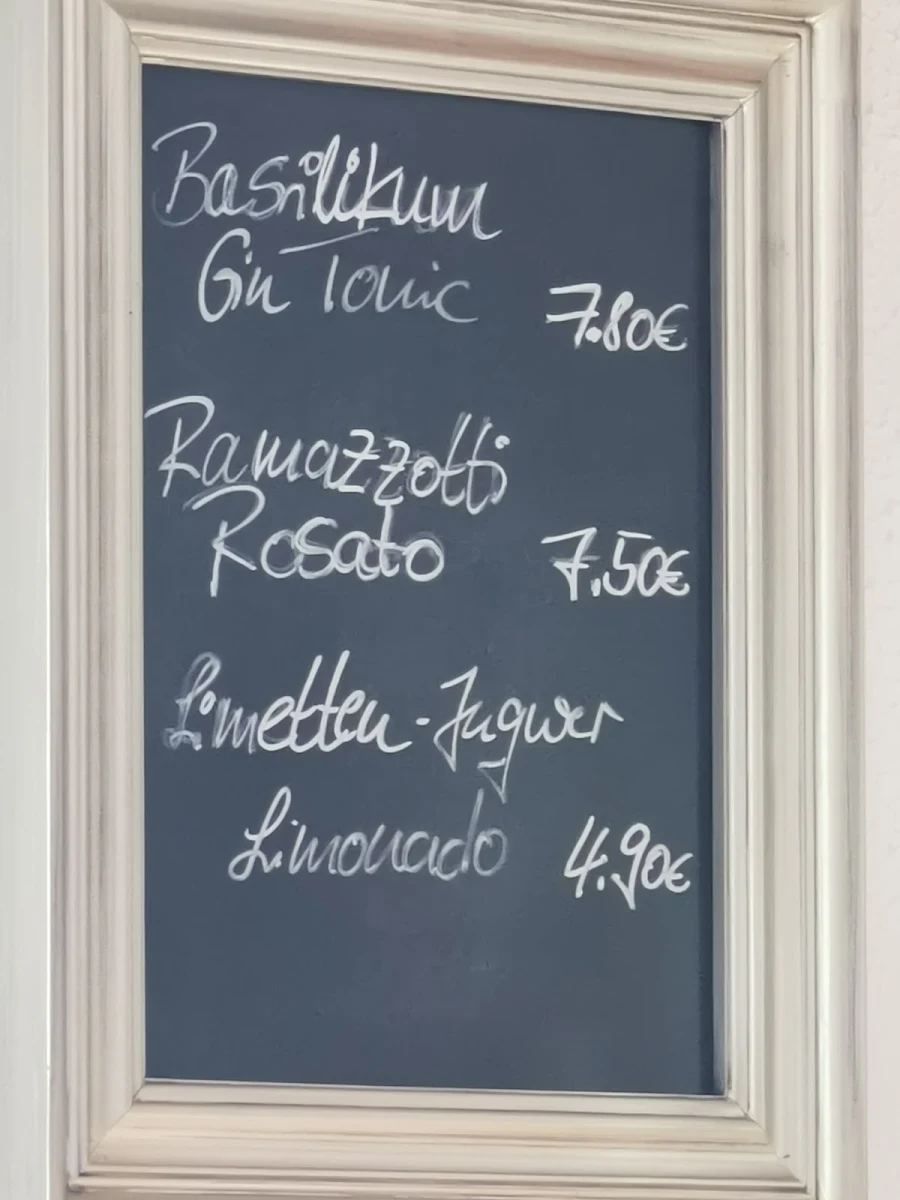 Basilikum
Gin Tonic 7.80€
Ramazzotti
Rosato 7.50€
Limetten-Ingwer
Limonado 4.90€